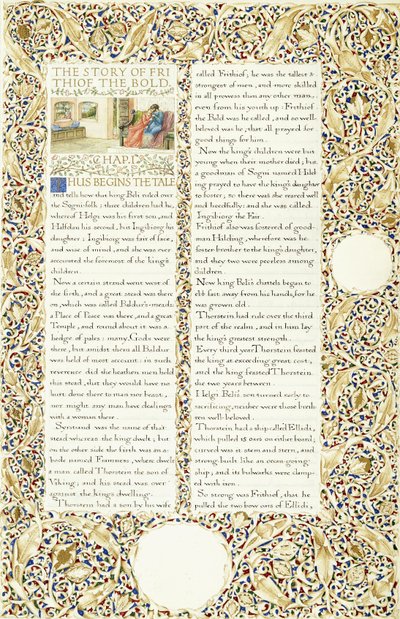 THE STORY OF FRI
THIOF THE BOLD.
CHAP. I.
THUS BEGINS THE TALE
and tells how that king Beli ruled over
the Sogni-folk; three children had he,
whereof Helgi was his first son, and
Halfdan his second, but Ingibiorg his
daughter; Ingibiorg was fair of face,
and wise of mind, and she was ever
accounted the foremost of the king's
children.
Now a certain strand went west of
the firth, and a great stead was there
on, which was called Baldur's-meads;
a Place of Peace was there, and a great
Temple, and round about it was a
hedge of pales: many Gods were
there, but amidst them all Baldur
was held of most account: in such
reverence did the heathen men hold
this stead, that they would have no
hurt done there to man nor beast;
nor might any man have dealings
with a woman there.
Syrstrand was the name of that
stead whereas the king dwelt; but
on the other side the firth was an a-
bode named Framness, where dwelt
a man called Thorstein the son of
Viking; and his stead was over
against the king's dwelling.
Thorstein had a son by his wife
called Frithiof; he was the tallest &
strongest of men, and more skilled
in all prowess than any other man,
even from his youth up: Frithiof
the Bold was he called, and so well-
beloved was he, that all prayed for
good things for him.
Now the king's children were but
young when their mother died; but
a goodman of Sogni named Hild
ing prayed to have the king's daughter
to foster; so there was she reared well
and heedfully: and she was called
Ingibiorg the Fair.
Frithiof also was fostered of good-
man Hilding, wherefore was he
foster-brother to the king's daughter,
and they two were peerless among
children.
Now king Beli's chattels began to
ebb fast away from his hands, for he
was grown old.
Thorstein had rule over the third
part of the realm, and in him lay
the king's greatest strength.
Every third year Thorstein feasted
the king at exceeding great cost;
and the king feasted Thorstein
the two years between.
Helgi Beli's son turned early to
sacrificing, neither were those breth-
ren well-beloved.
Thorstein had a ship called Ellidi,
which pulled 15 oars on either board;
carved was it stem and stern, and
strong-built like an ocean-going
ship; and its bulwarks were clamp-
ed with iron.
So strong was Frithiof, that he
pulled the two bow oars of Ellidi,